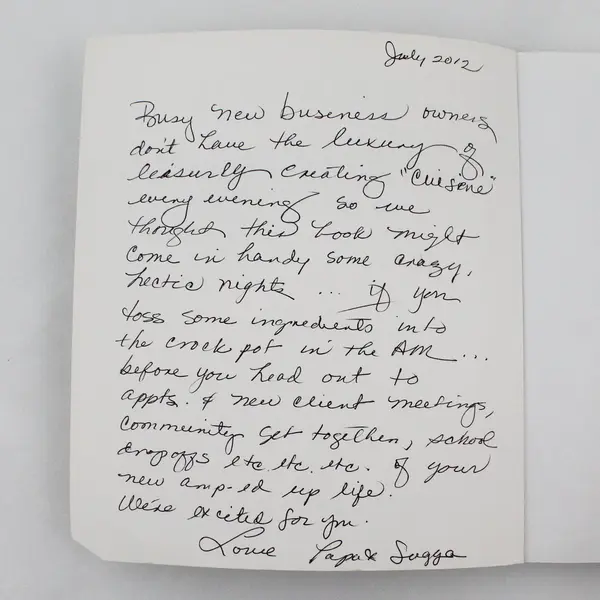 July 2012
Busy new business owners
don't have the luxury of
leisurly creating "Cuisine"
every evening so we
thought this book might
come in handy some crazy,
hectic nights ... if you
toss some ingredients into
the crock pot in the AM ...
before you head out to
appts. & new client meetings,
community get together, school
dropoffs etc. etc. etc. of your
new amp-ed up life.
We're excited for you.
Love Papa & Sugga